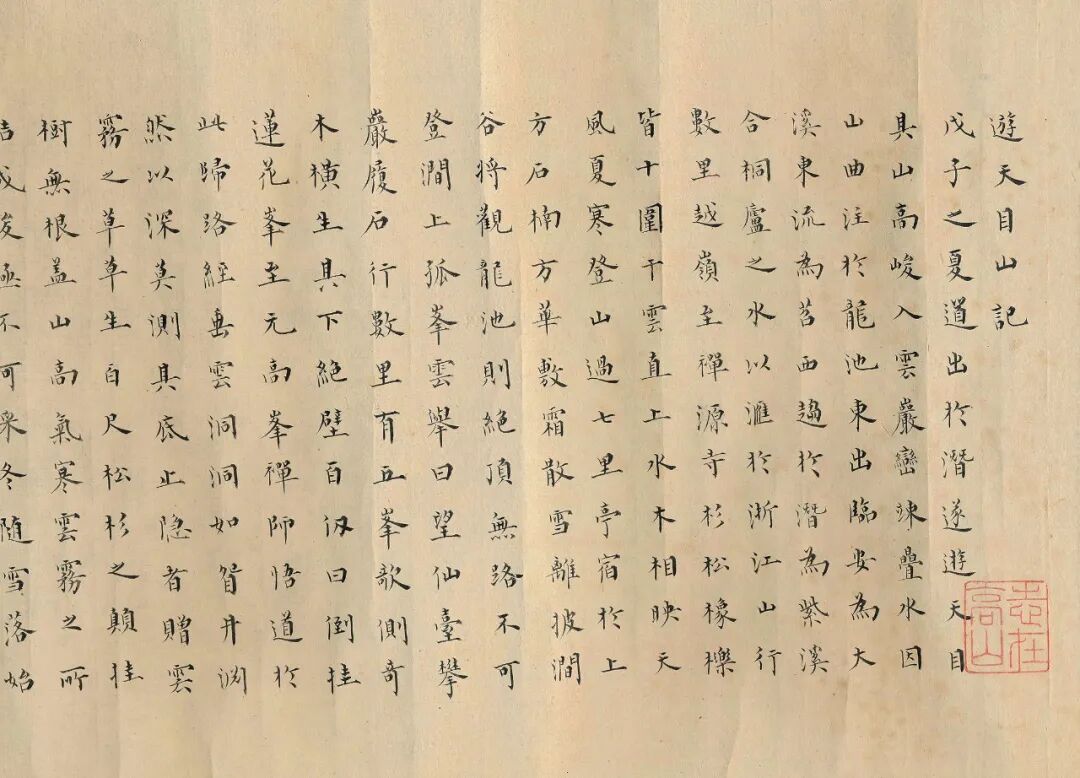 遊天目山記
戊子之夏道出於潛遂遊天目
其山高峻入雲巖巒竦疊水因
山曲注於龍池東出臨安為大
溪東流為苕西趨於潛為紫溪
合桐廬之水以滙於浙江山行
數里越嶺至禪源寺杉松橡櫟
皆十圍干雲直上水木相映天
風夏寒登山過七里亭宿於上
方石楠方華敷霜散雪離披澗
谷將觀龍池則絕頂無路不可
登澗上孤峯雲舉曰望仙臺攀
巖履石行數里有五峯欹側奇
木橫生其下絕壁百仞曰倒挂
蓮花峯至元高峯禪師悟道於
此歸路經垂雲洞洞如眢井渊
然以深莫測其底止隱者贈雲
霧之草草生百尺松杉之顛挂
樹無根蓋山高氣寒雲霧之所
結成峻極不可采冬隨雪落始
志在高山